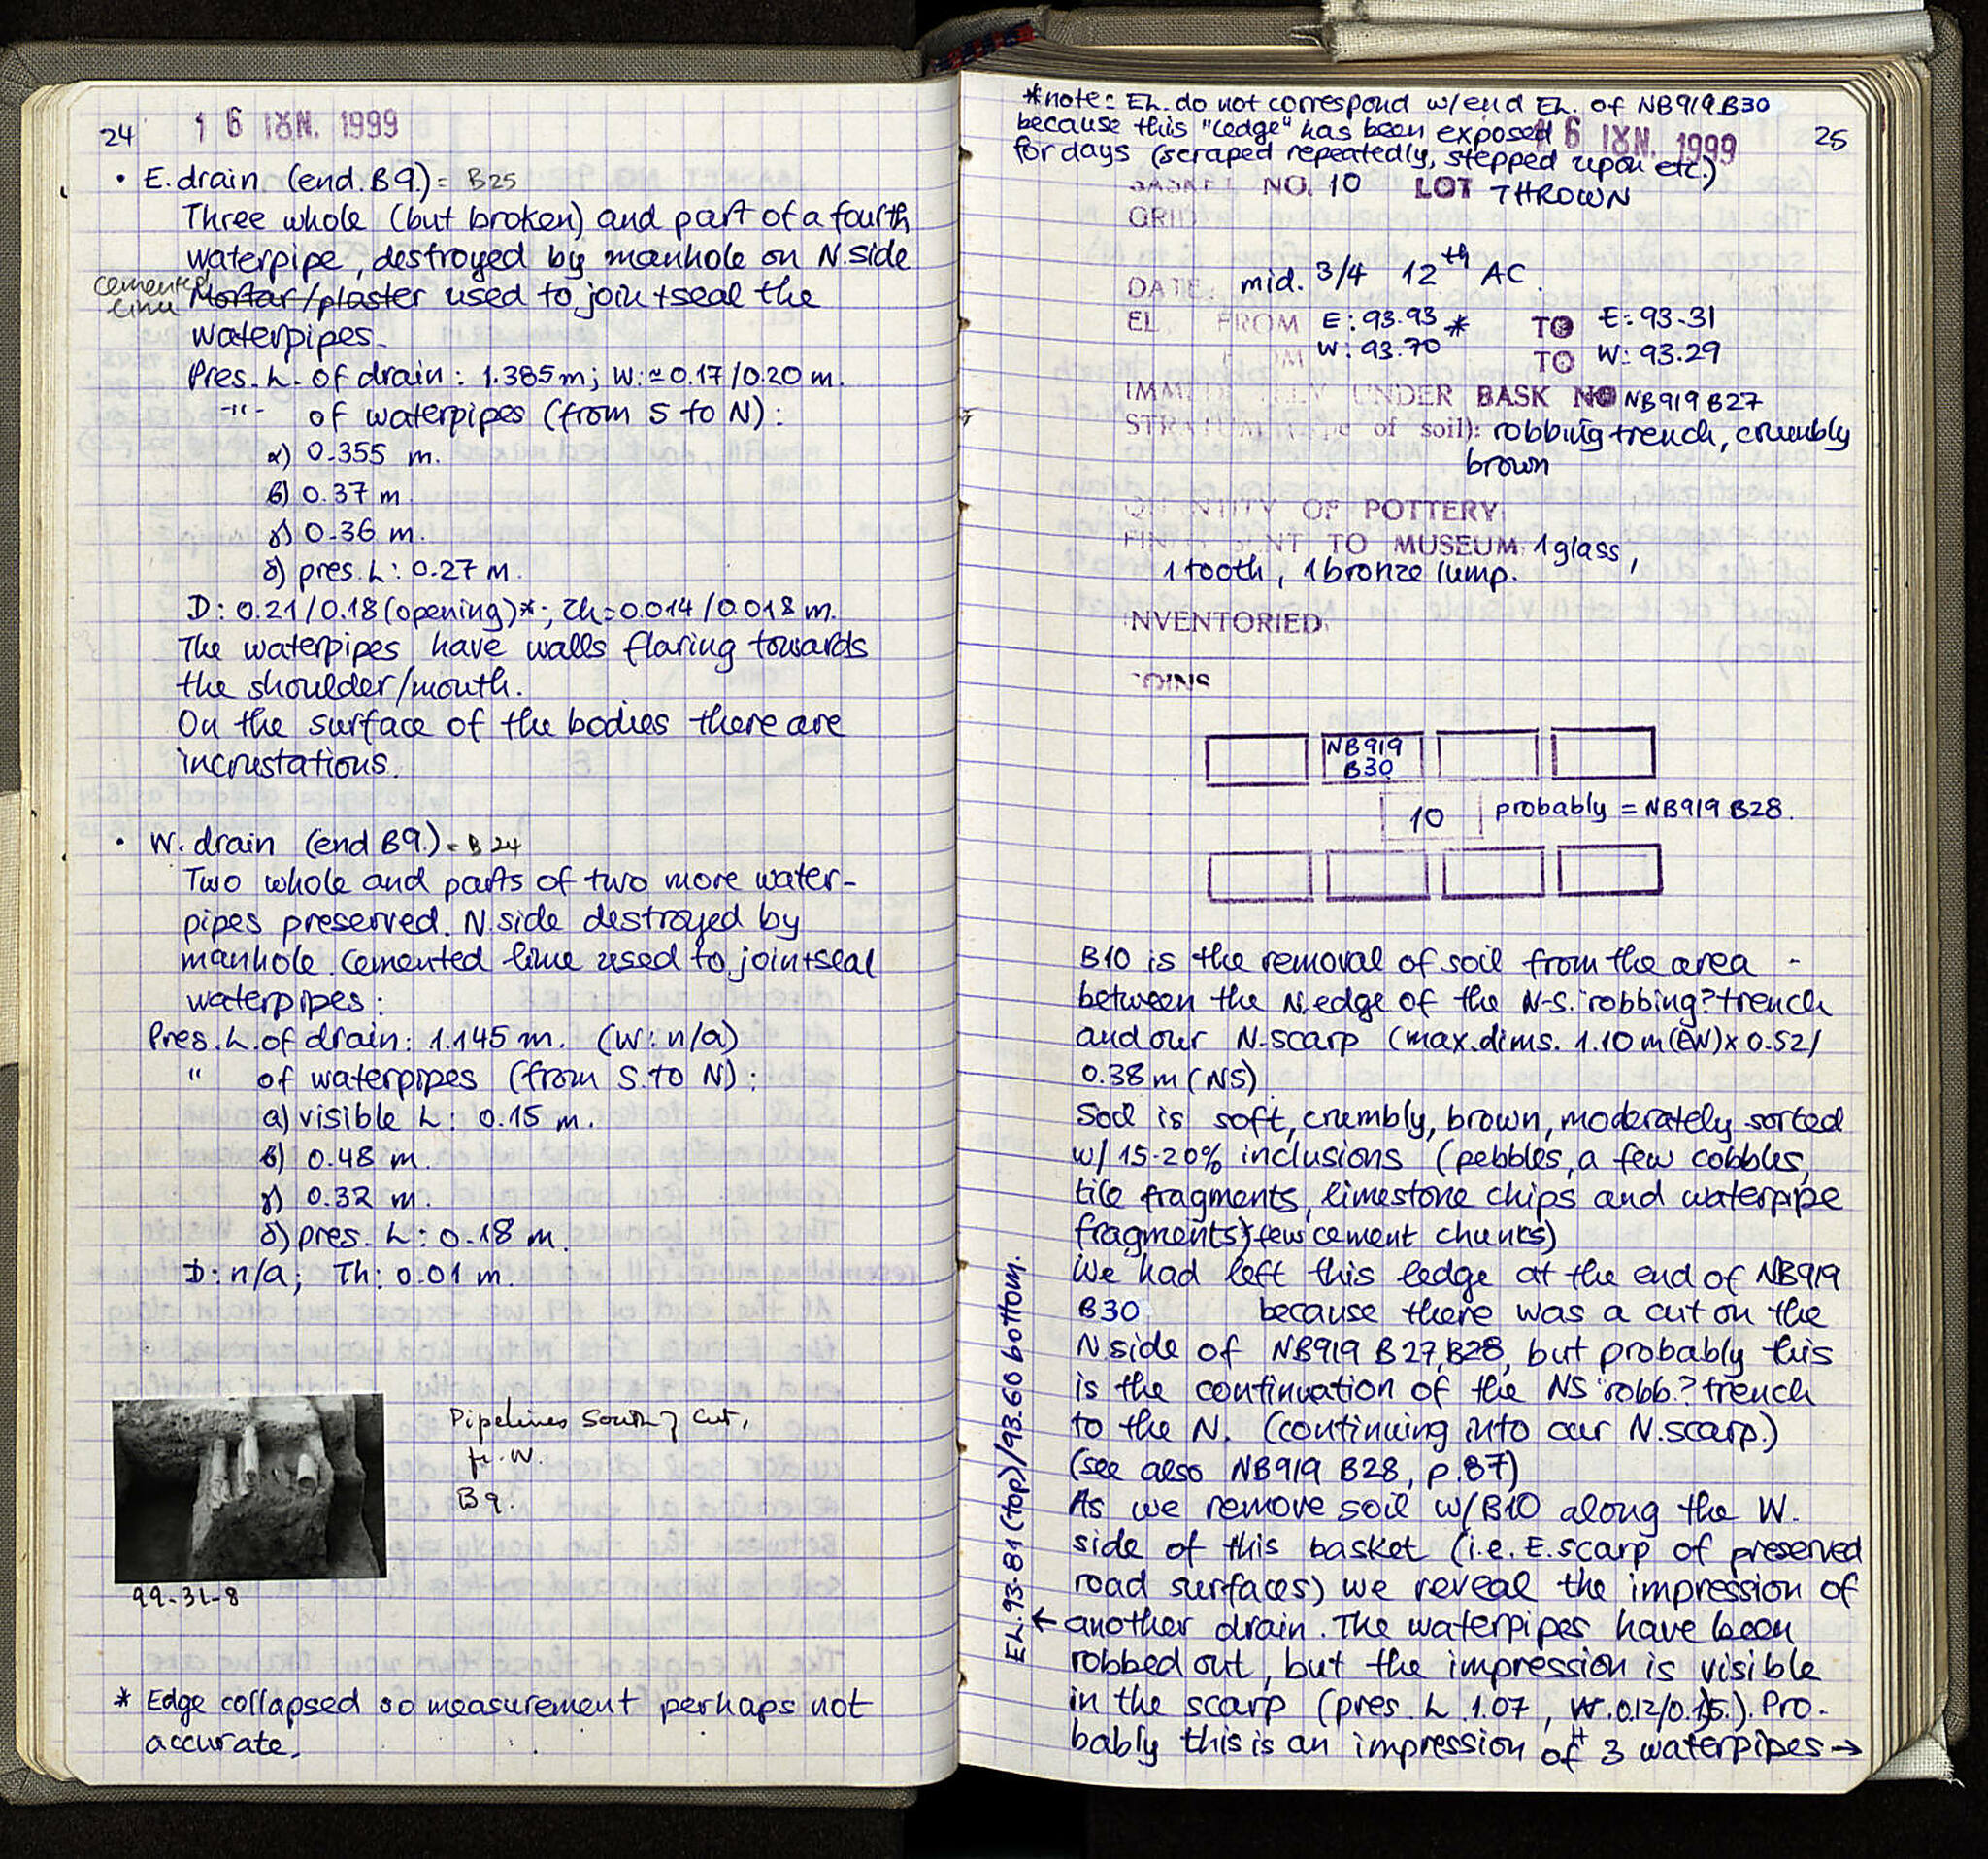 24
1 6 ΙΟΥΝ. 1999
• E. drain (end. B9.) = B25
Three whole (but broken) and part of a fourth
waterpipe, destroyed by manhole on N. side
cemented
lime Mortar/plaster used to join + seal the
waterpipes.
Pres. L. of drain: 1.385m; W: ≃ 0.17/0.20 m.
-"- of waterpipes (from S to N):
α) 0.355 m.
β) 0.37 m.
γ) 0.36 m.
δ) pres. L: 0.27 m.
D: 0.21/0.18 (opening)*; Th: 0.014/0.018 m.
The waterpipes have walls flaring towards
the shoulder/mouth.
On the surface of the bodies there are
incrustations.
• W. drain (end B9.) = B24
Two whole and parts of two more water-
pipes preserved. N. side destroyed by
manhole. Cemented lime used to join+seal
waterpipes:
Pres. L. of drain: 1.145 m. (W: n/a)
" of waterpipes (from S. to N):
α) visible L: 0.15 m.
β) 0.48 m.
γ) 0.32 m.
δ) pres. L: 0.18 m.
D: n/a; Th: 0.01 m.
Pipelines South of cut,
fr. W.
B9.
99-31-8
* Edge collapsed so measurement perhaps not
accurate.
*note: EL. do not correspond w/end EL. of NB919 B30
because this "ledge" has been exposed
for days (scraped repeatedly, stepped upon etc.)
6 ΙΟΥΝ. 1999
25
BASKET NO. 10 LOT THROWN
GRID
DATE: mid. 3/4 12th AC.
EL. FROM E: 93.93 * TO E: 93.31
FROM W: 93.70 TO W: 93.29
IMMEDIATELY UNDER BASK NO NB919 B27
STRATUM (type of soil): robbing trench, crumbly
brown
QUANTITY OF POTTERY:
FINDS SENT TO MUSEUM: 1 glass,
1 tooth, 1 bronze lump.
INVENTORIED:
COINS
NB919
B30
10 probably = NB919 B28.
B10 is the removal of soil from the area -
between the N. edge of the N-S. "robbing? trench
and our N. scarp (max. dims. 1.10 m (EW) x 0.52/
0.38 m (NS)
Soil is soft, crumbly, brown, moderately sorted
w/ 15-20% inclusions (pebbles, a few cobbles,
tile fragments, limestone chips and waterpipe
fragments, few cement chunks)
We had left this ledge at the end of NB919
B30 because there was a cut on the
N side of NB919 B27, B28, but probably this
is the continuation of the NS "robb.? trench
to the N. (continuing into our N. scarp.)
(see also NB919 B28, p. 87)
As we remove soil w/B10 along the W.
side of this basket (i.e. E. scarp of preserved
road surfaces) we reveal the impression of
← another drain. The waterpipes have been
robbed out, but the impression is visible
in the scarp (pres. L. 1.07, W. 0.12/0.15.). Pro-
bably this is an impression of 3 waterpipes →
EL. 93.81 (top)/93.60 bottom.